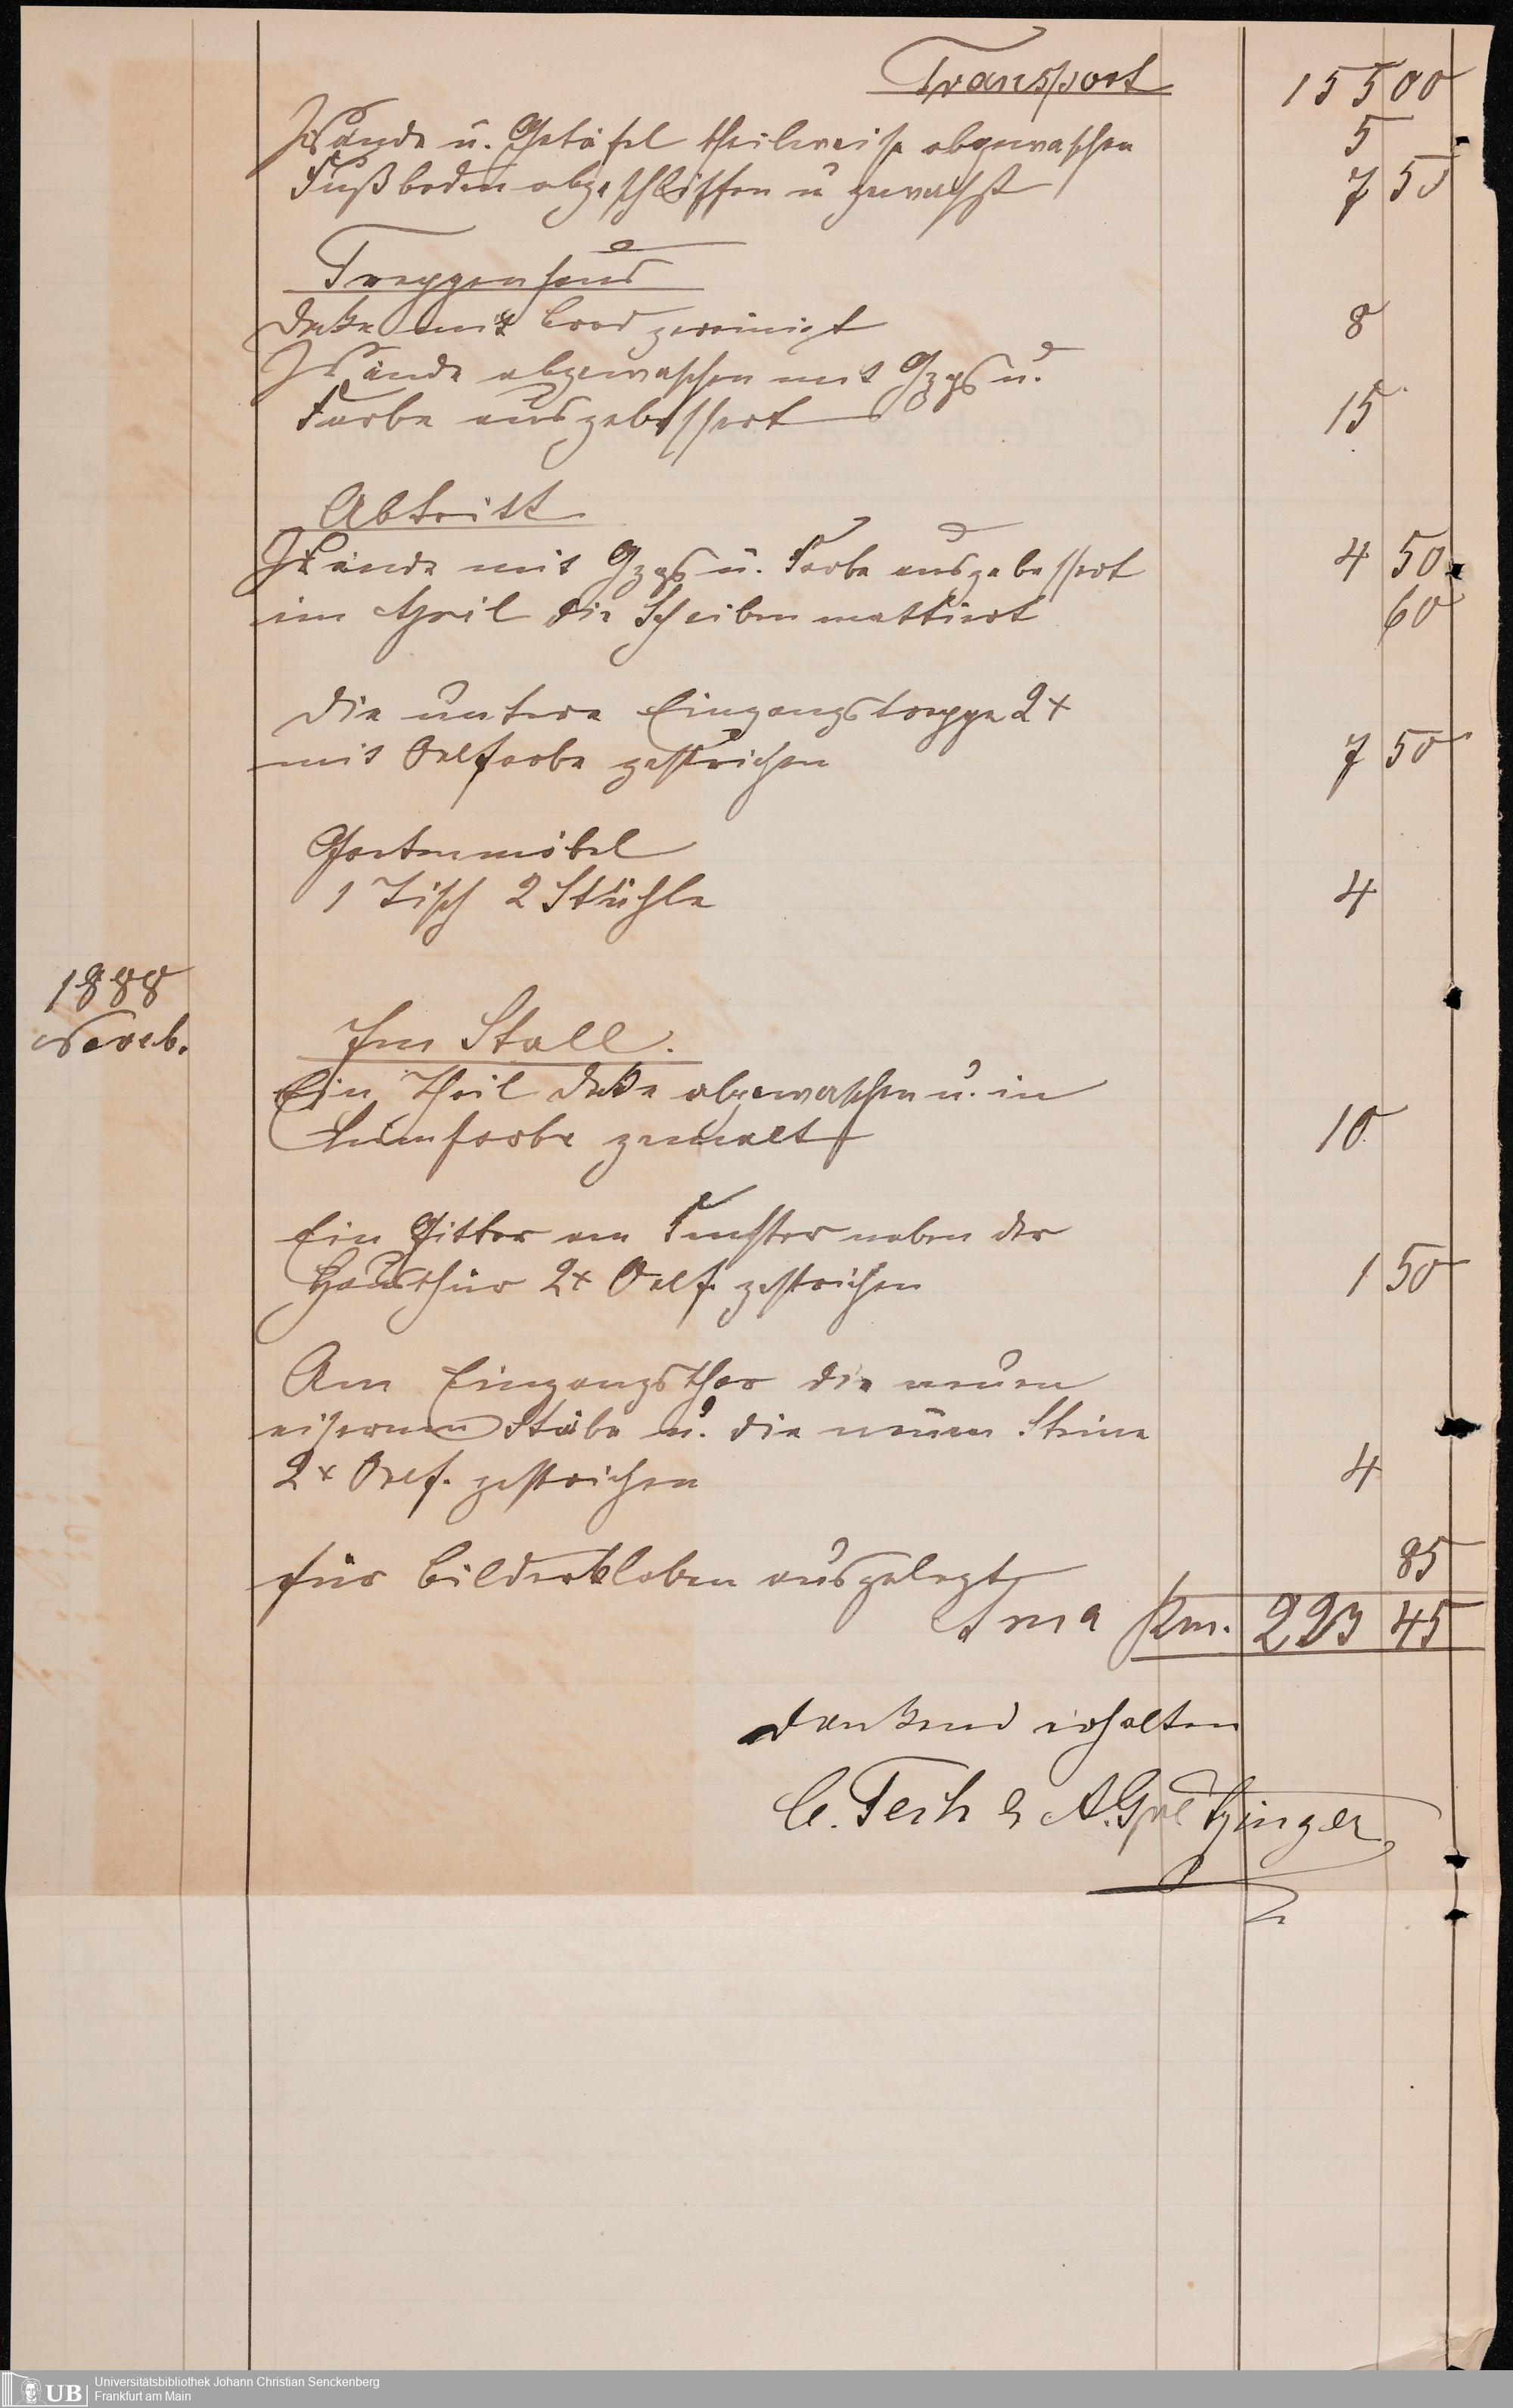 Transport 155 00
Wände u. Getäfel theilweise abgewaschen 5
Fußboden abgeschliffen u gewachst 7 50
Treppenhaus
Decke mit Brod gereinigt 8
Wände abgewaschen mit Gyps u.
Farbe ausgebessert 15
Abtritt
Wände mit Gyps u. Farbe ausgebessert 4 50
im April die Scheiben mattiert 60
die untere Eingangstreppe 2x
mit Oelfarbe gestrichen 7 50
Gartenmöbel
1 Tisch 2 Stühle 4
1888
Novb.
Im Stall.
Ein Theil Decke abgewaschen u. in
Leimfarbe gemalt 10
Ein Gitter am Fenster neben der
Hausthür 2x Oelf. gestrichen 1 50
Am Eingangsthor die neuen
eisernen Stäbe u. die neuen Steine
2x Oelf. gestrichen 4
für Bilderkloben ausgelegt 85
Sma Rm. 223 45
dankend erhalten
C. Fech & A. Gretzinger
UB
Universitätsbibliothek Johann Christian Senckenberg
Frankfurt am Main